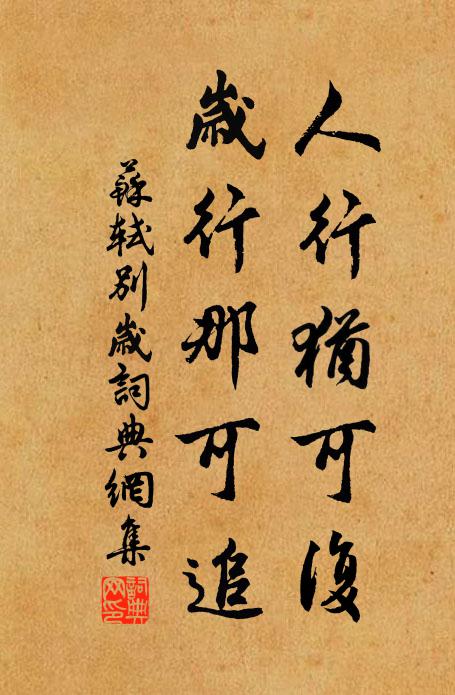 人行猶可復
歲行那可追
蘇軾別歲詞典網集
詞典
网印